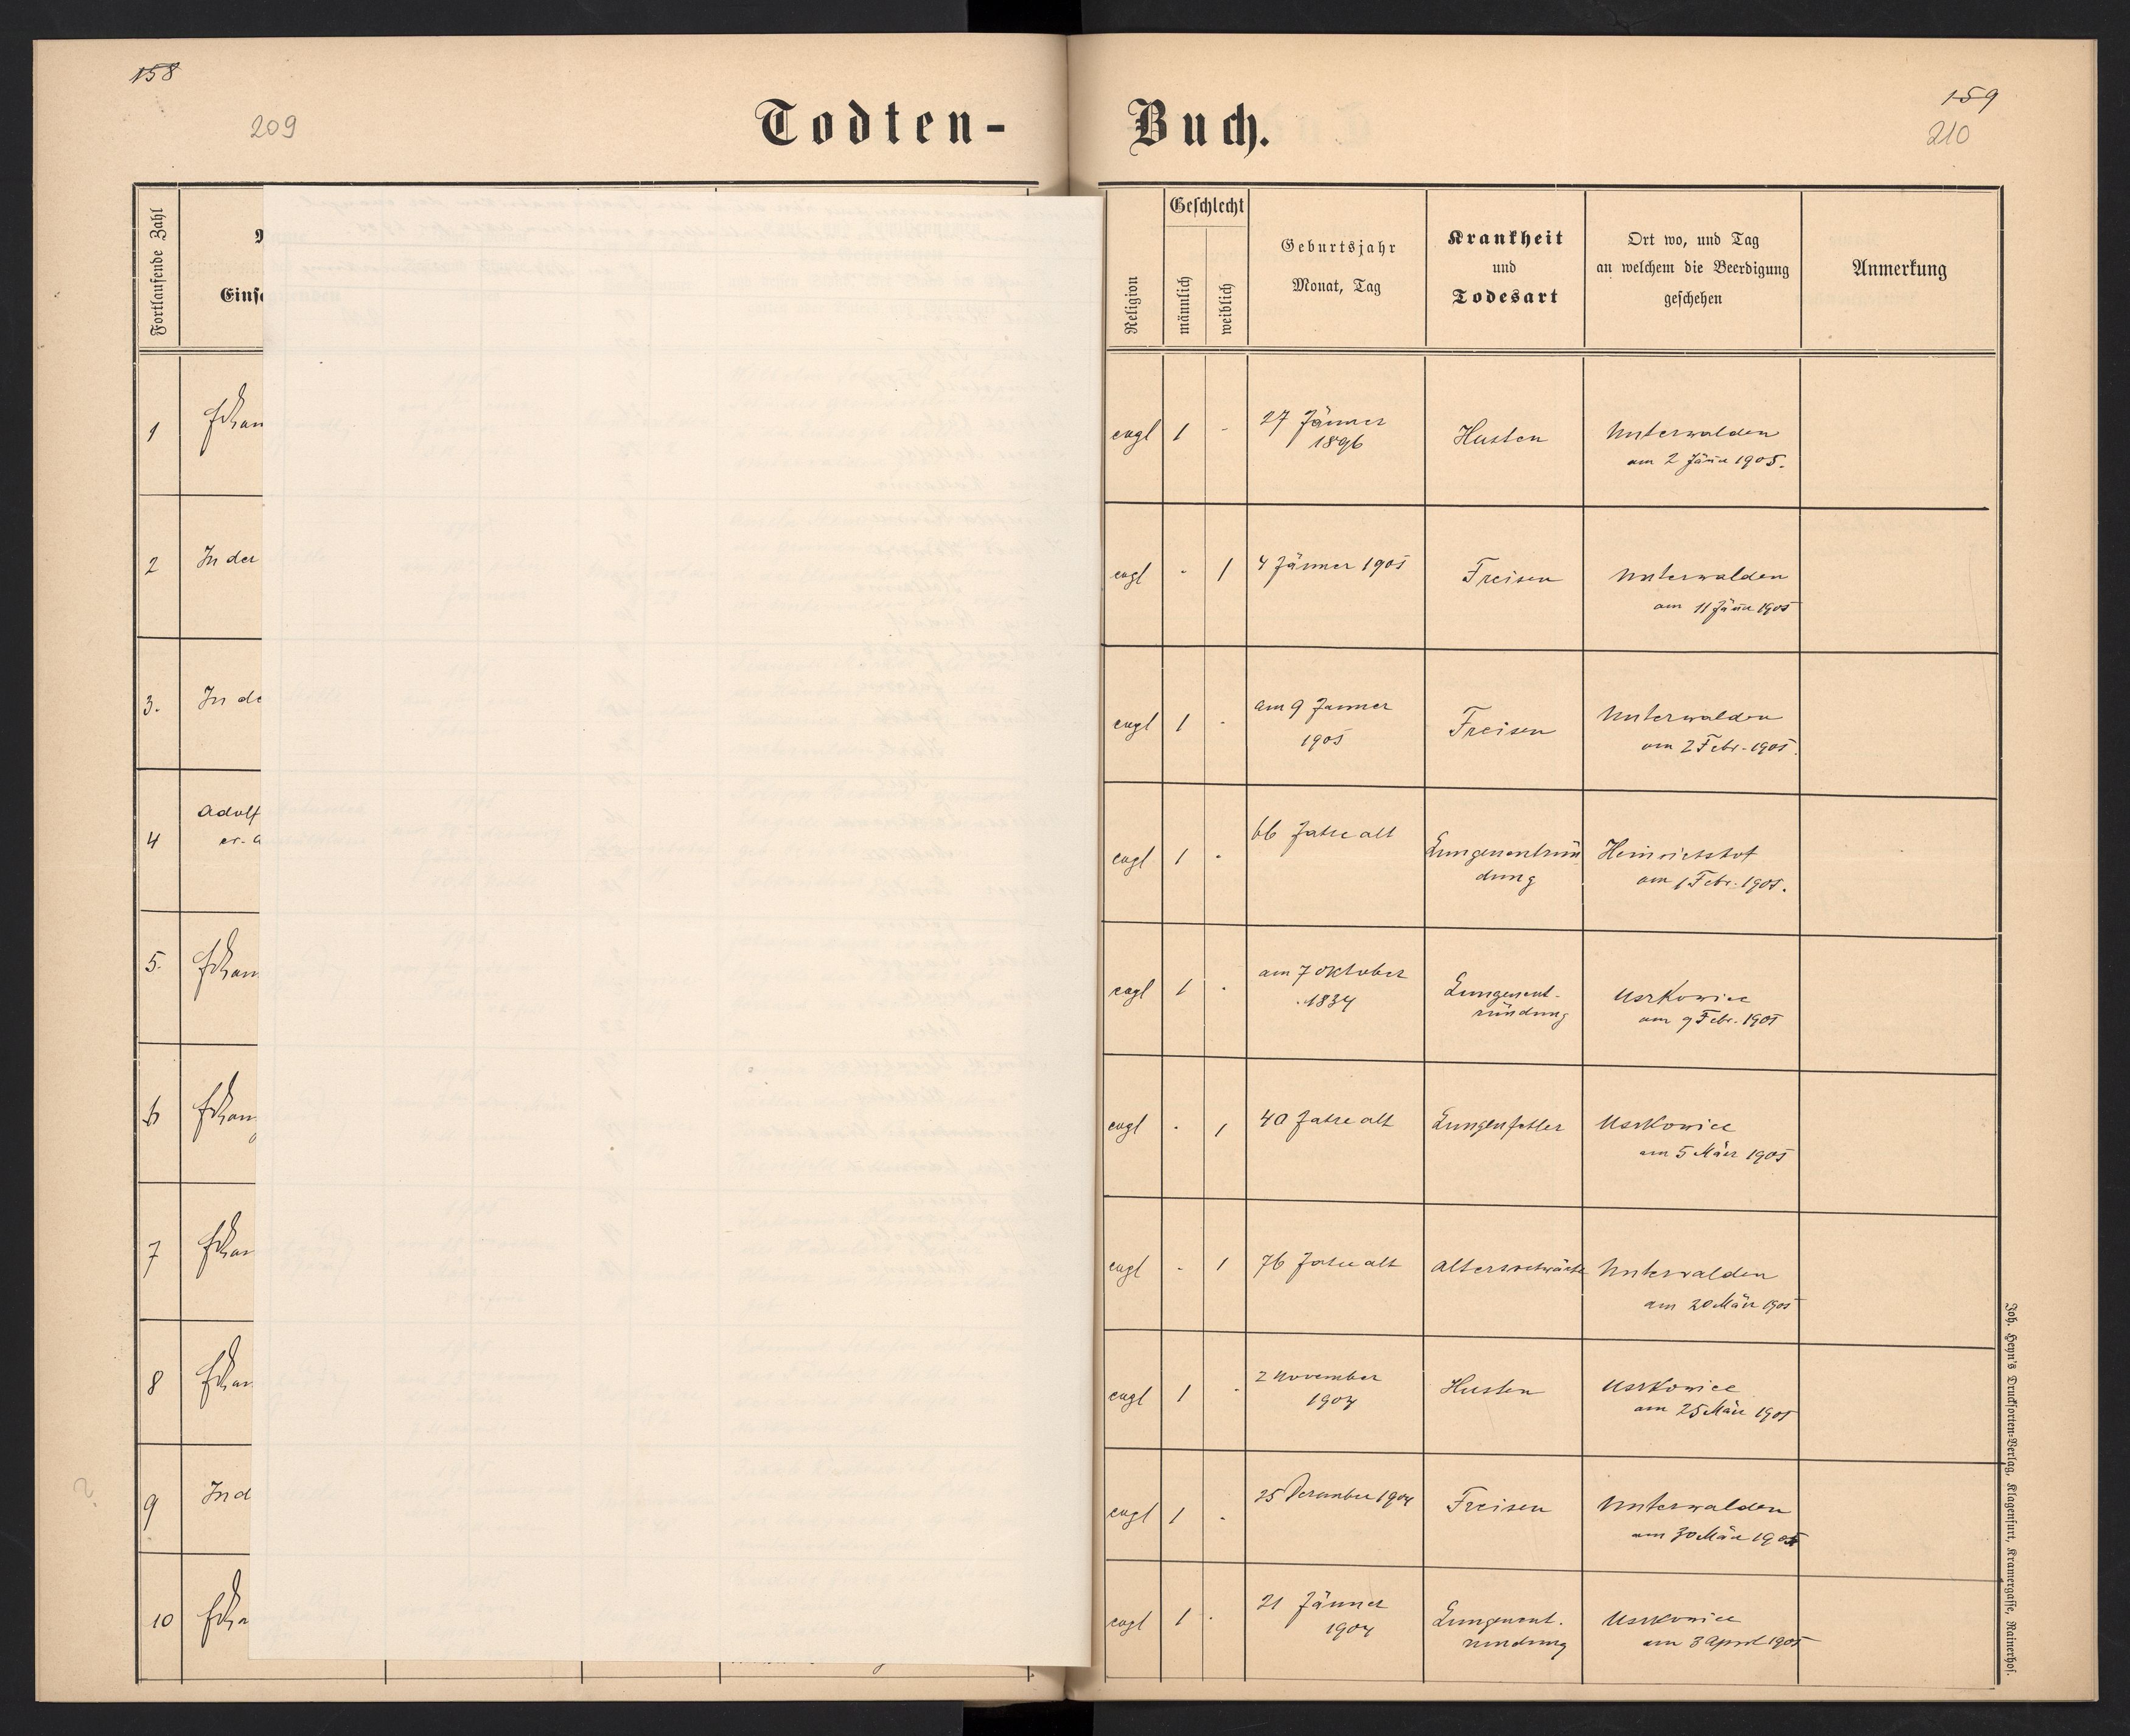 158
209
Todten-
Fortlaufende Zahl
1
2 In der
3. In de
4 Adolf
5.
6
7
8
9 In d
10
Buch.
159
210
Religion
Geschlecht
männlich
weiblich
Geburtsjahr
Monat, Tag
Krankheit
und
Todesart
Ort wo, und Tag
an welchem die Beerdigung
geschehen
Anmerkung
evgl 1 - 27 Jänner
1896
Husten
Unterwalden
am 2 Jäner 1905.
evgl - 1 4 Jänner 1905 Freisen Unterwalden
am 11 Jäner 1905
evgl 1 - am 9 Janner
1905
Freisen
Unterwalden
am 2 Febr. 1905.
evgl 1 - 66 Jahre alt
Lungenentzün
dung
Heinrichshof
am 1 Febr. 1905.
evgl 1 - am 7 Oktober
1834
Lungenent-
zündung
Uszkowice
am 9 Febr. 1905
evgl - 1 40 Jahre alt Lungenfehler Uszkowice
am 5 März 1905
evgl - 1 76 Jahre alt Altersschwäche Unterwalden
am 20 März 1905
evgl 1 - 2 November
1904
Husten
Uszkowice
am 25 März 1905
evgl 1 - 25 Dezember 1904 Freisen Unterwalden
am 30 März 1905
evgl 1 - 21 Jänner
1904
Lungenent.
zundung
Uszkowice
am 3 April 1905
Joh. Heyn's Drucksorten-Verlag, Klagenfurt, Kramergasse, Rainerhof.